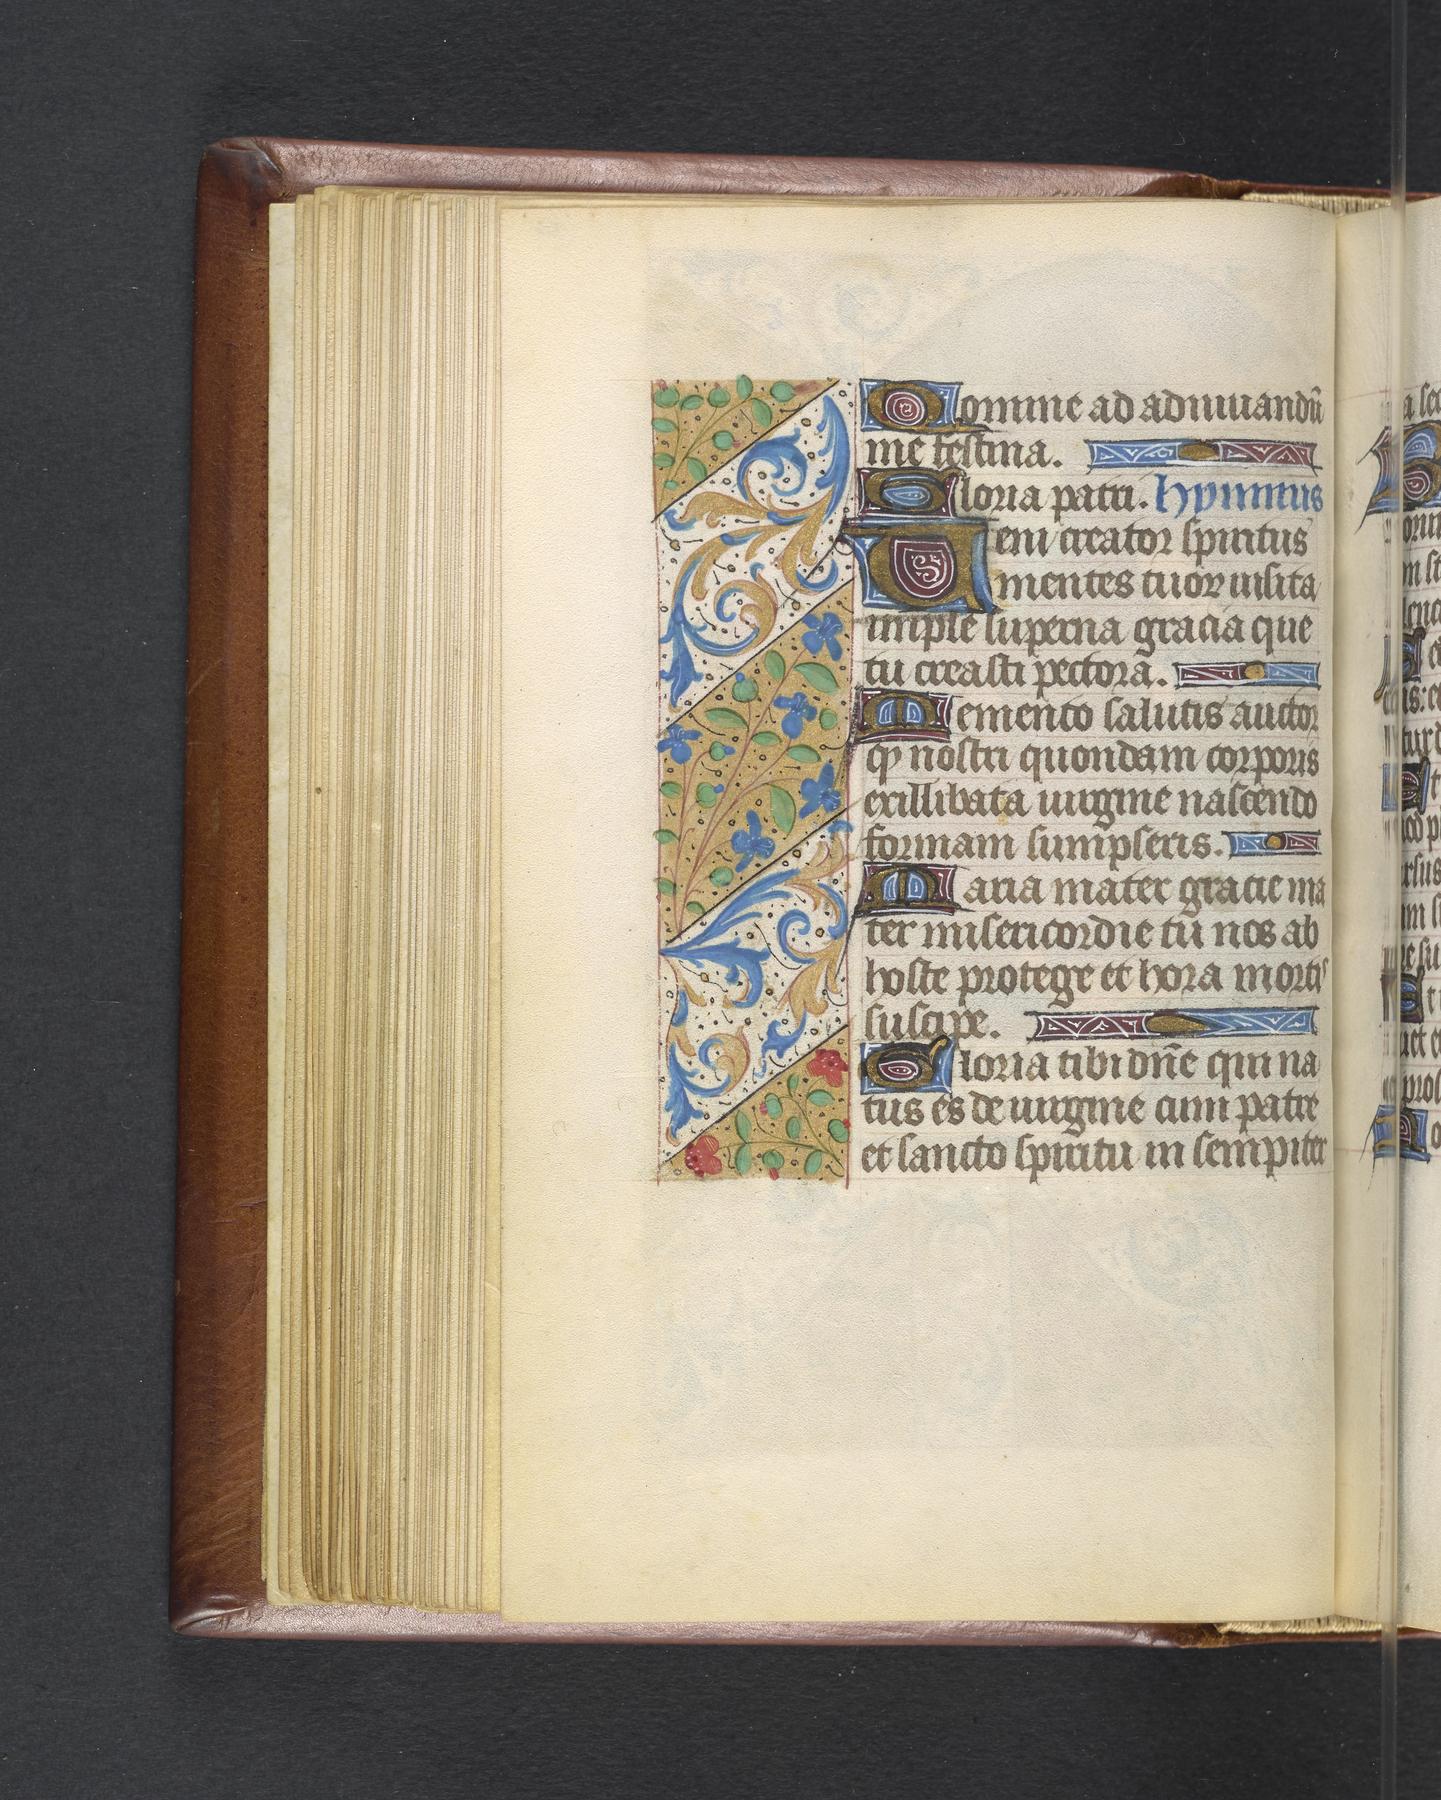 Domine ad adiuuandū
me festina.
Gloria patri. hymnus
Veni creator spiritus
mentes tuoꝝ visita
imple superna gracia que
tu creasti pectora.
Memento salutis auctor
qꝫ nostri quondam corporis
exillibata uirgine nascendo
formam sumpseris.
Maria mater gracie ma
ter misericordie tu nos ab
hoste protege et hora mortis
suscipe.
Gloria tibi dn̄e qui na
tus es de uirgine cum patre
et sancto spiritu in sempiter